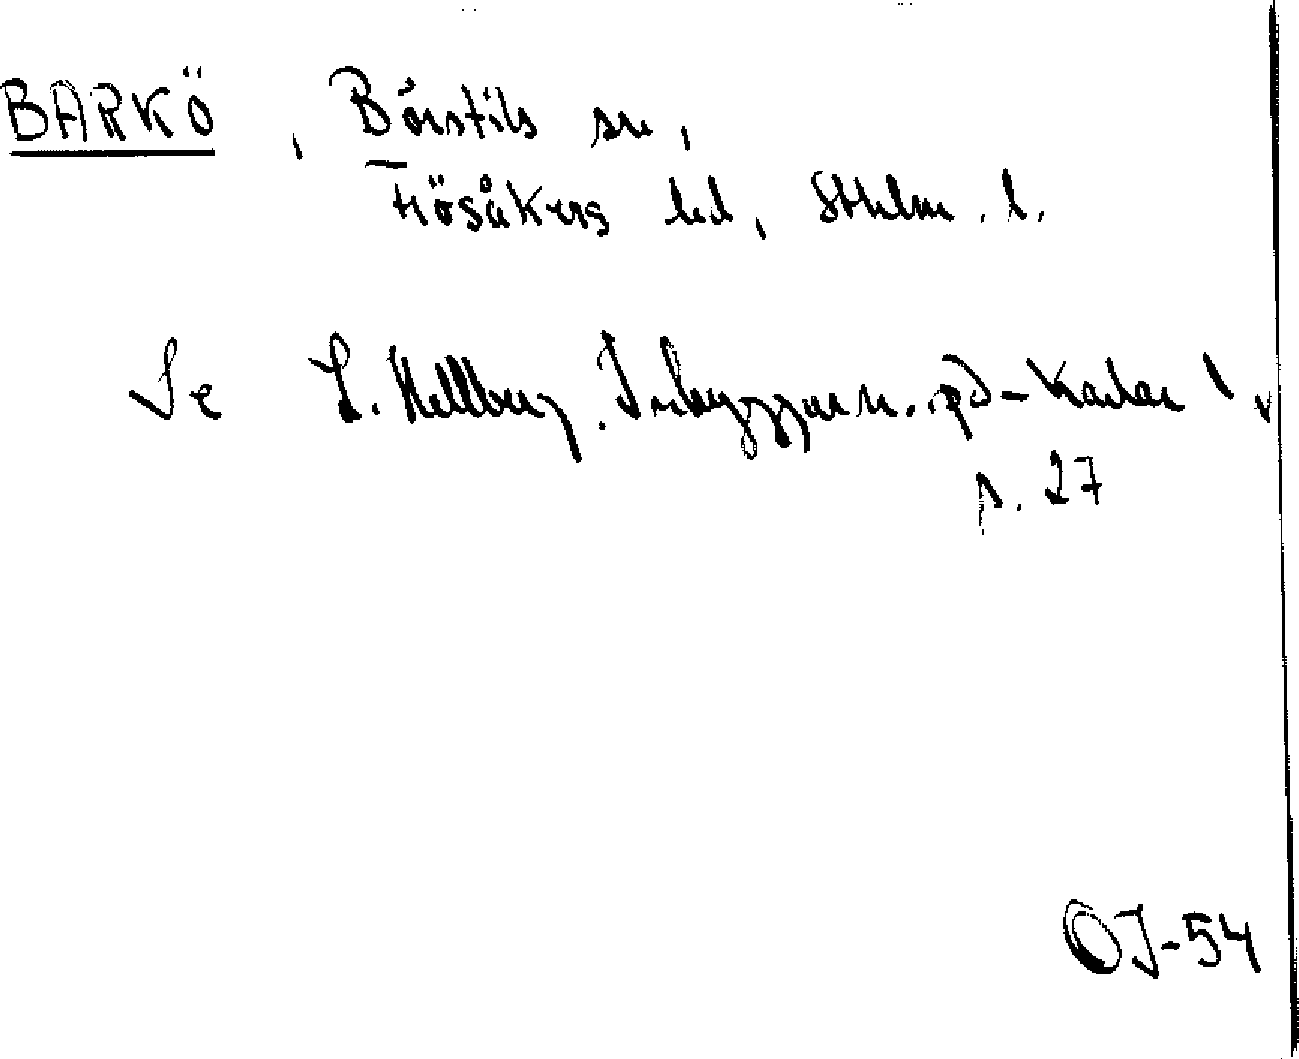 BARKÖ, Börstils sn,
Frösåkers hd, Sthlms. l.
Se L. Hellberg. Inbyggarn. på -karlar,
s. 27
OJ-54